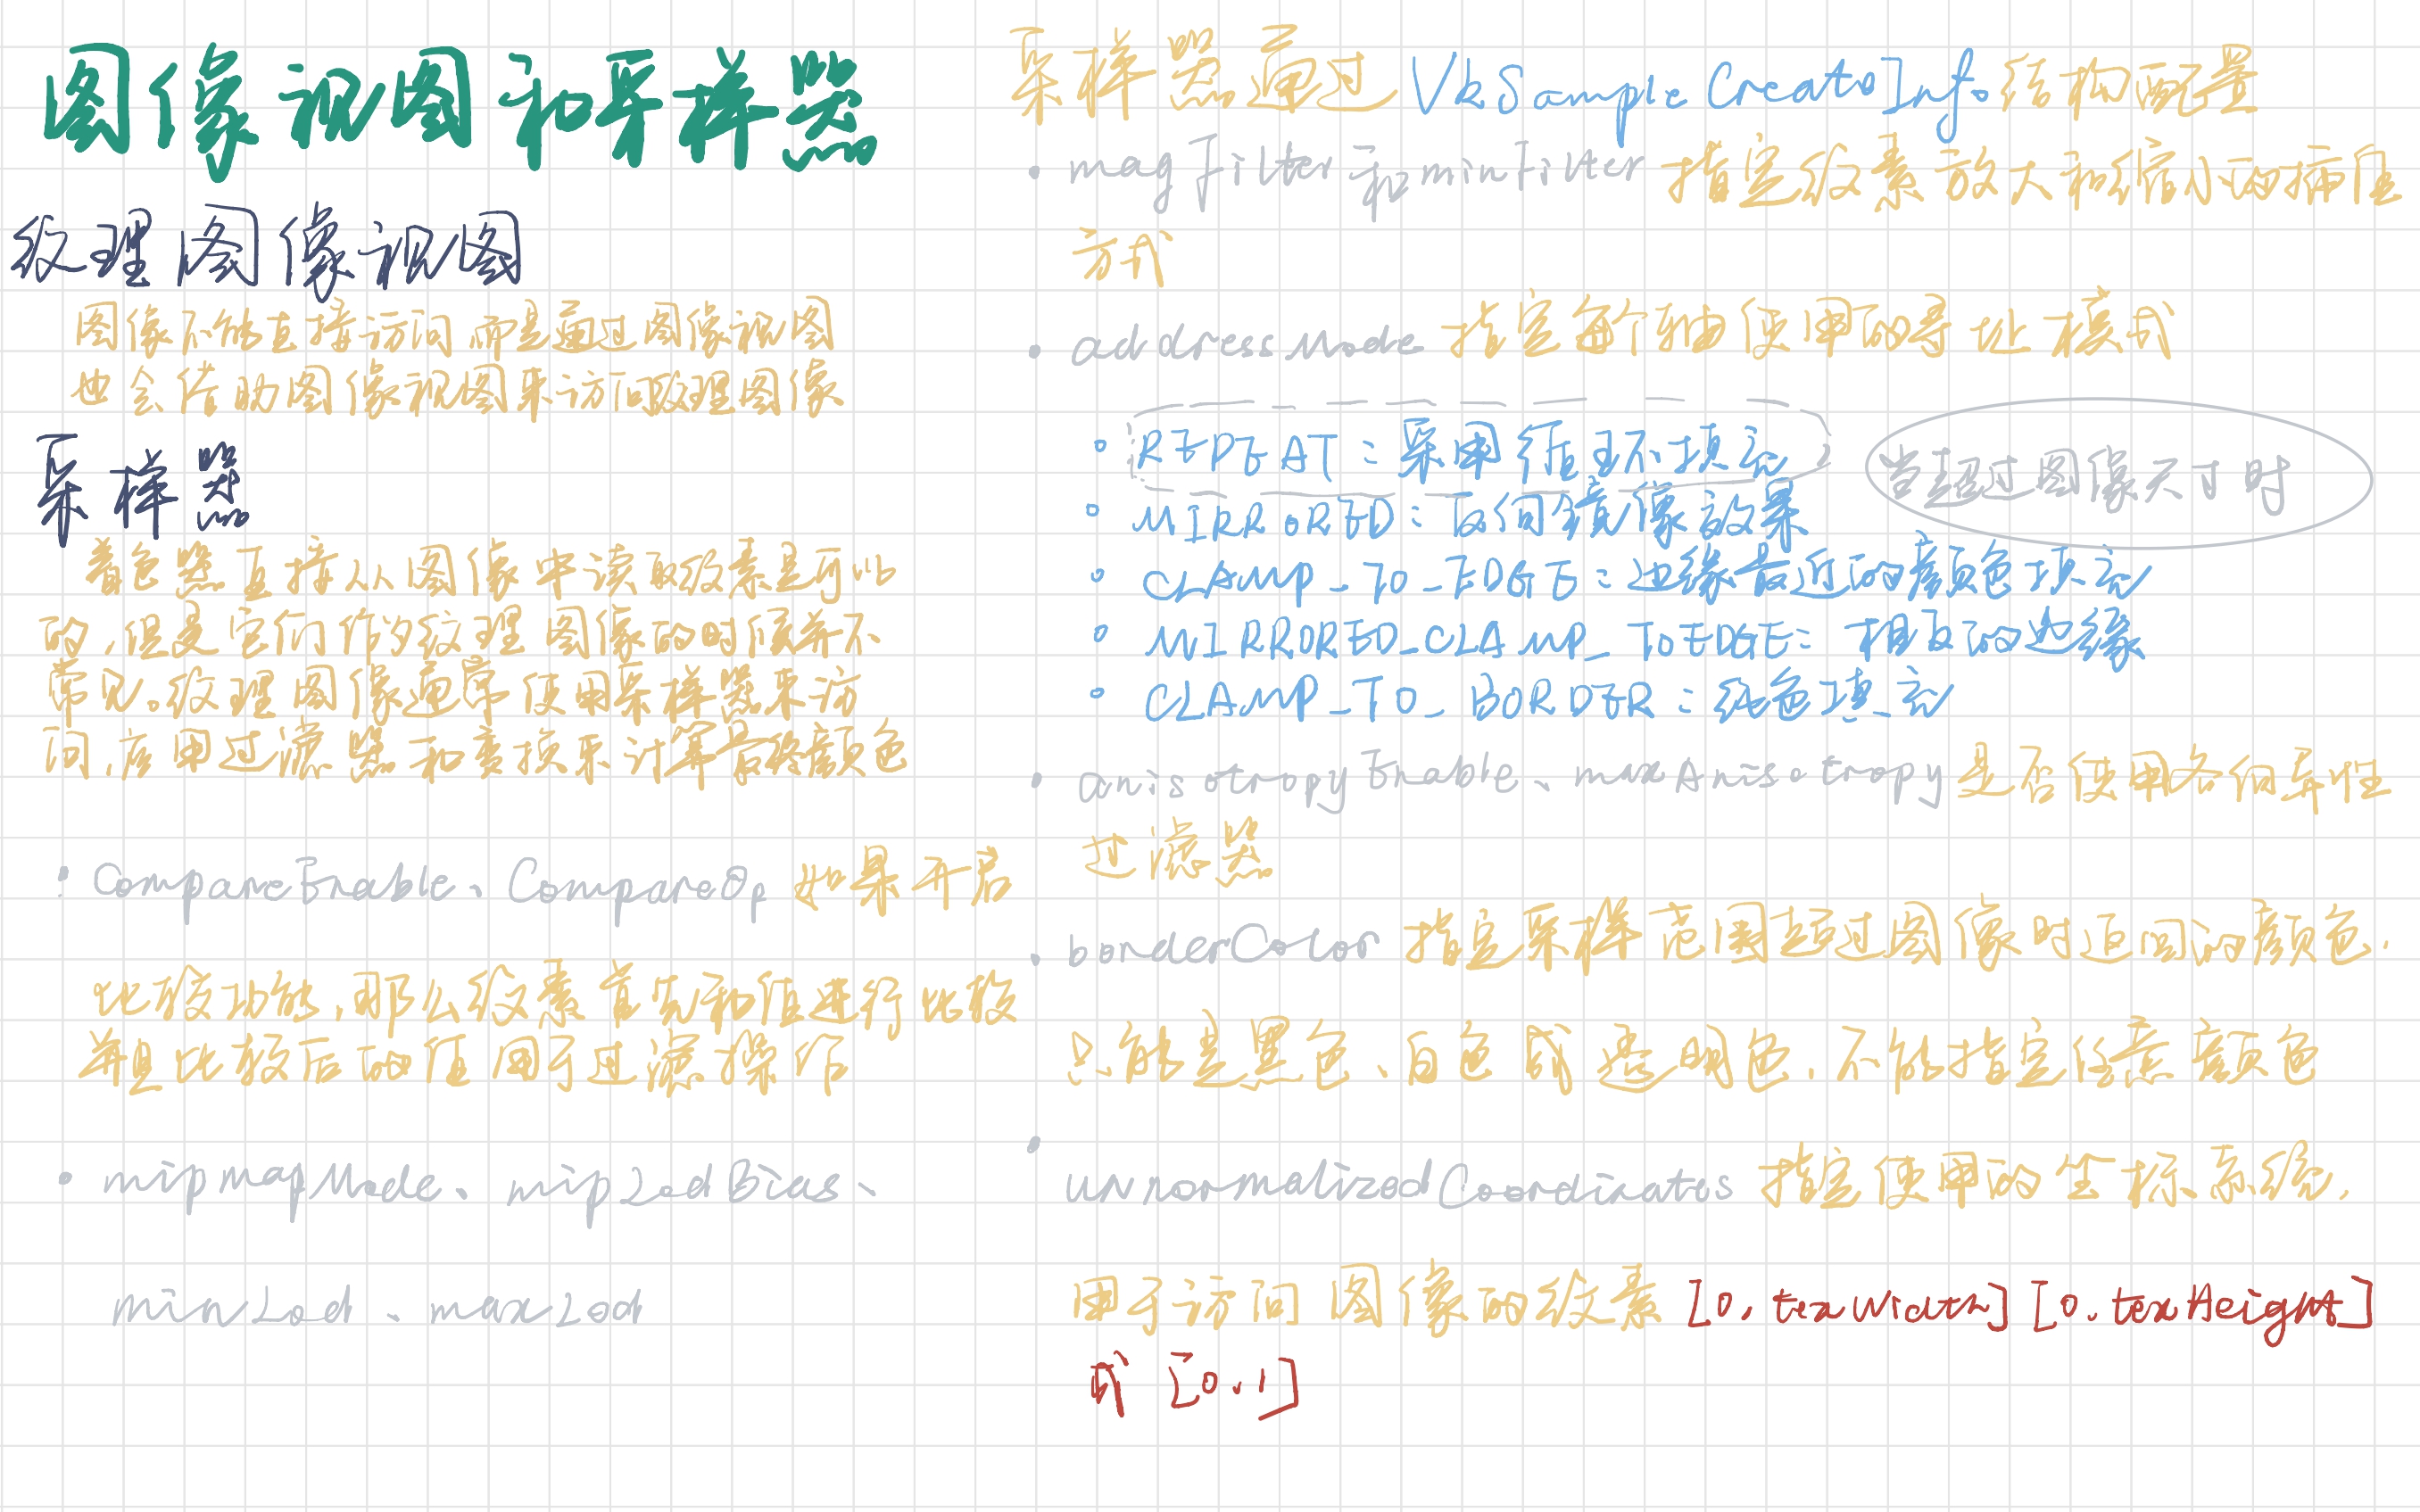 图像视图和采样器
纹理图像视图
图像不能直接访问而是通过图像视图
也会借助图像视图来访问纹理图像
采样器
着色器直接从图像中读取纹素是可以
的,但是它们作为纹理图像的时候并不
常见。纹理图像通常使用采样器来访
问,应用过滤器和变换来计算最终颜色
CompareEnable、CompareOp 如果开启
比较功能,那么纹素首先和值进行比较
并且比较后的值用于过滤操作
mipmapMode、mipLodBias、
minLod、maxLod
采样器通过 VkSampleCreatoInfo 结构配置
magFilter和minFilter 指定纹素放大和缩小的插值
方式
addressMode 指定每个轴使用的寻址模式
REPEAT:采用循环填充
当超过图像尺寸时
MIRRORED:反向镜像效果
CLAMP_TO_EDGE:边缘最近的颜色填充
MIRRORED_CLAMP_TOEDGE:相反的边缘
CLAMP_TO_BORDER:纯色填充
anisotropyEnable、maxAnisotropy 是否使用各向异性
过滤器
borderColor 指定采样范围超过图像时返回的颜色.
只能是黑色、白色或透明色.不能指定任意颜色
unnormalizedCoordinates 指定使用的坐标系统,
用于访问图像的纹素 [0,texWidth] [0,texHeight]
或 [0,1]